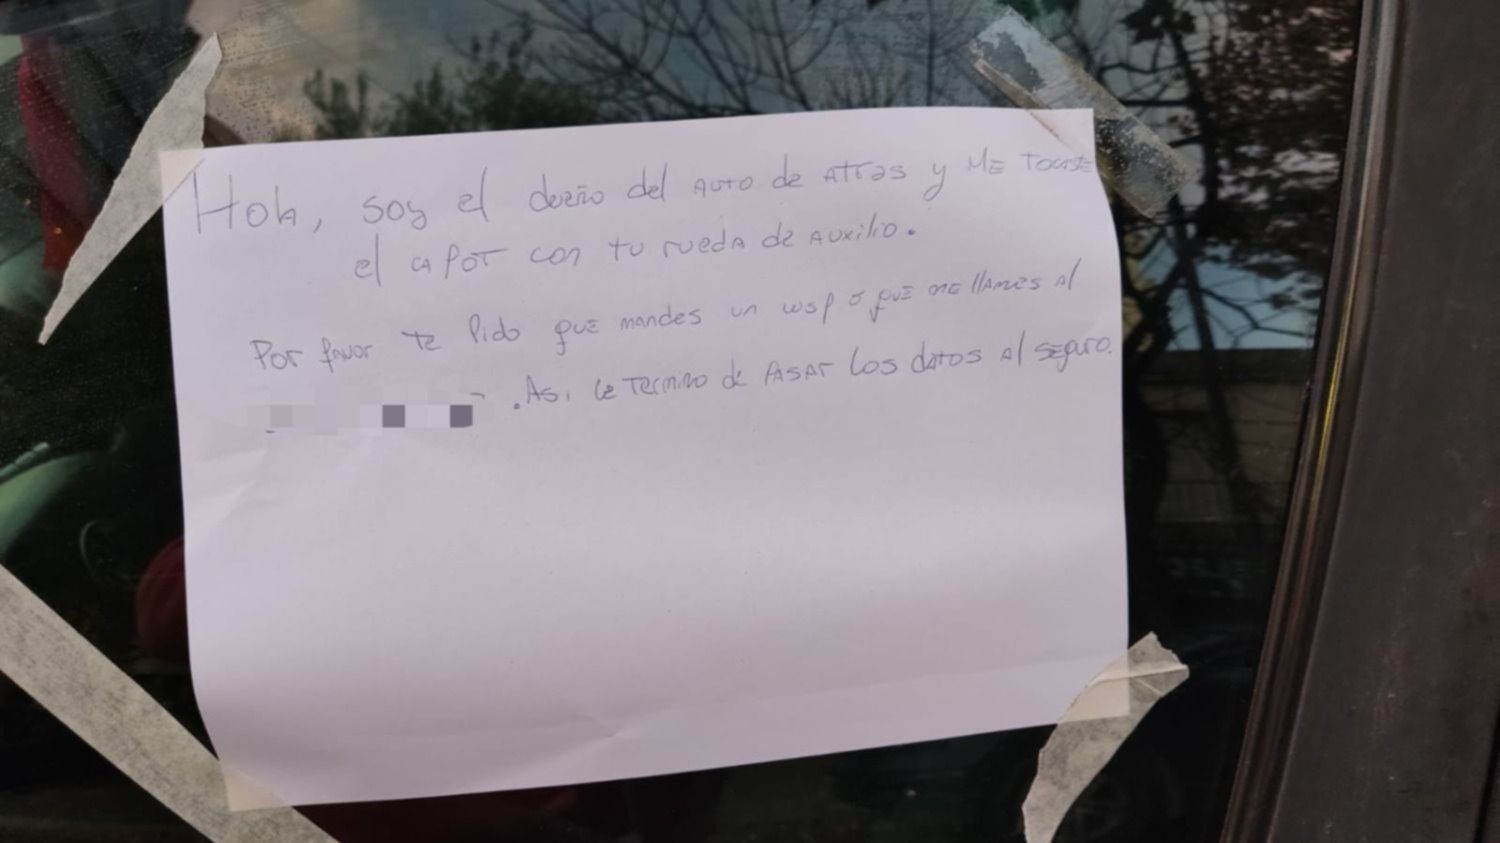 Hola, soy el dueño del AUTO de ATrás y ME TOCASTE
el CAPOT con tu rueda de AUXILIO.
Por favor te Pido que mandes un wsp o que me llames al
. Así le Termino de PASAR los datos al seguro.